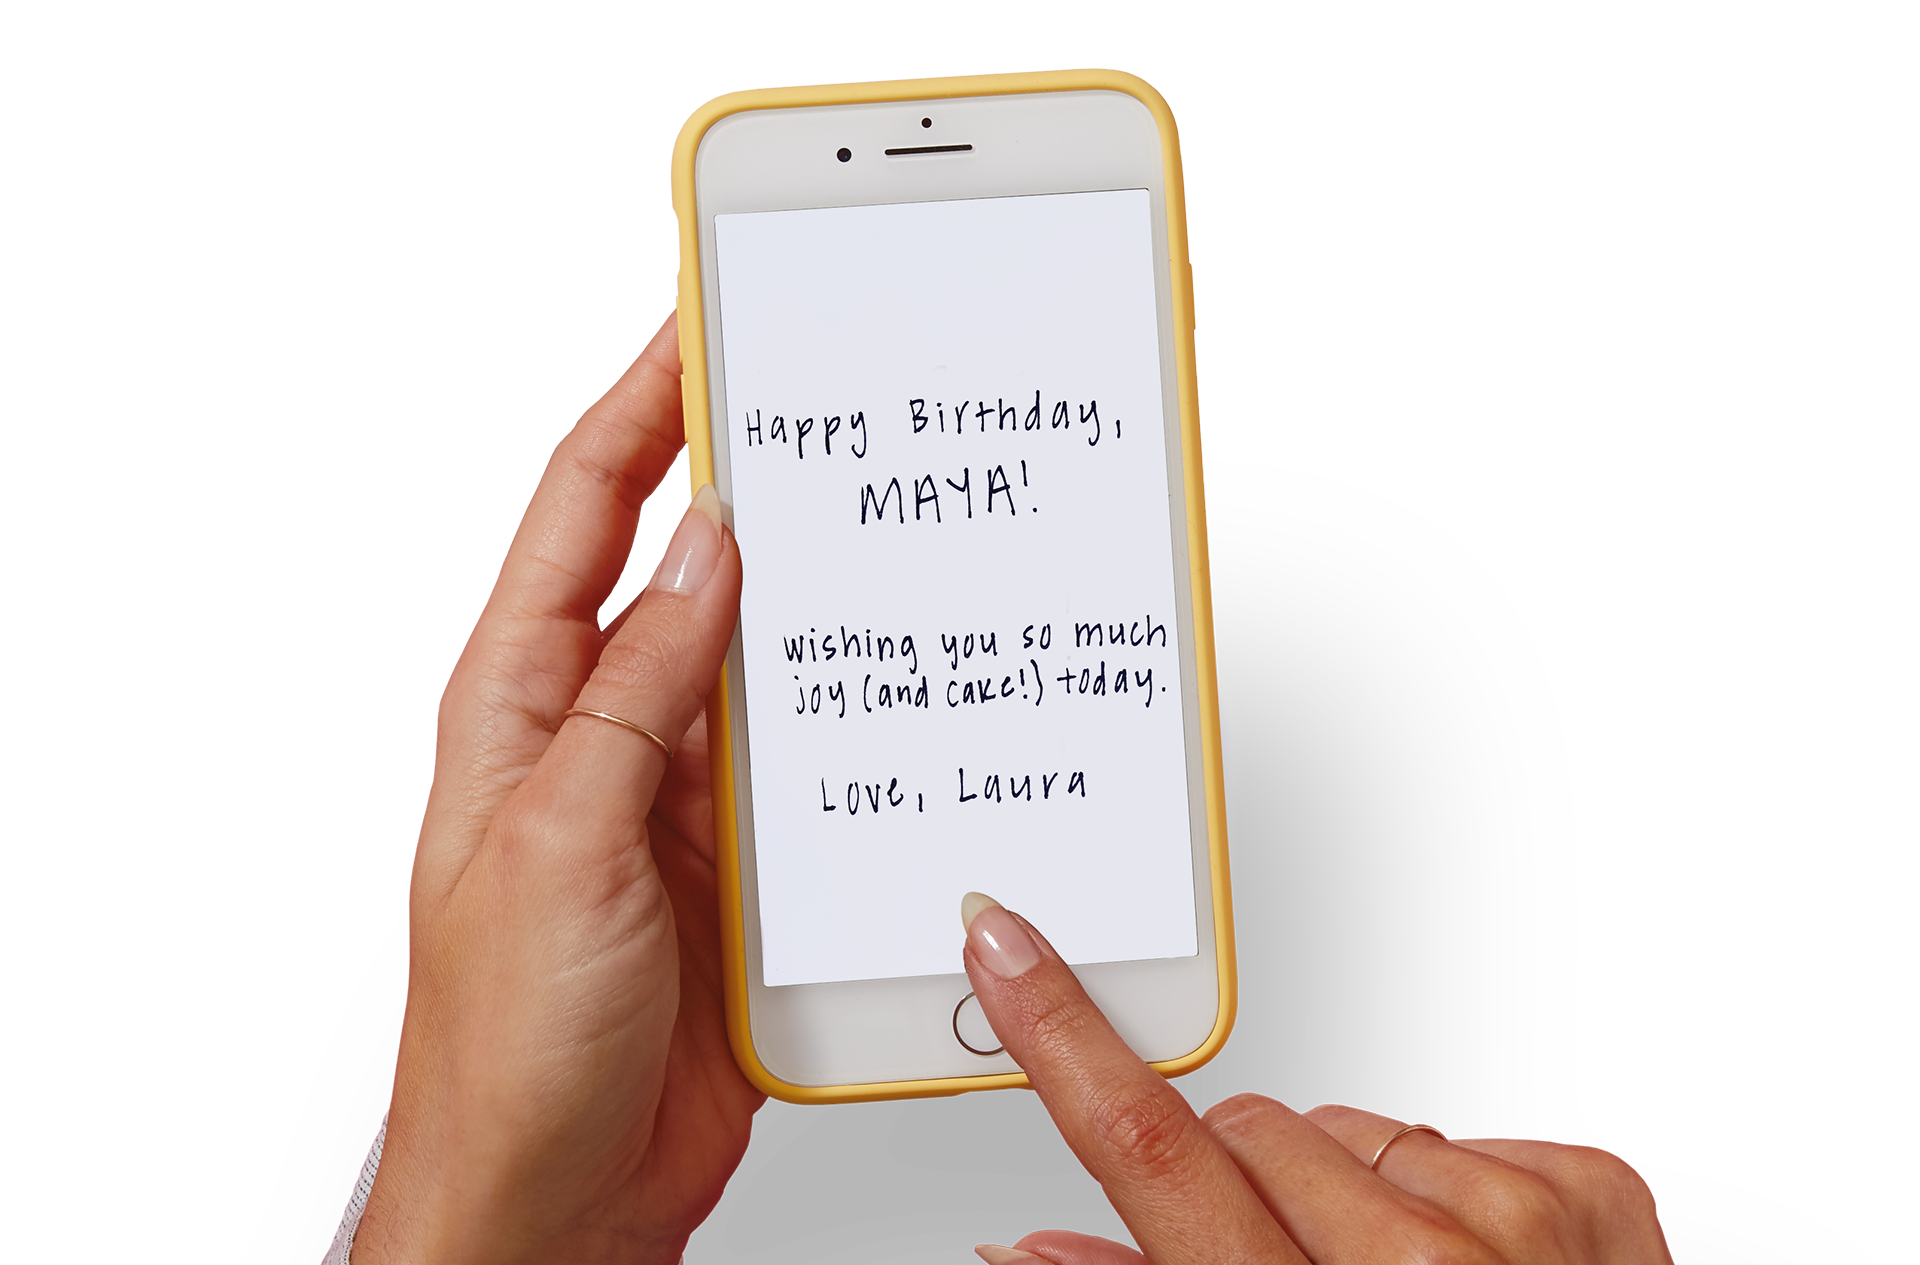 Happy Birthday,
MAYA!
wishing you so much
joy (and cake!) today.
Love, Laura